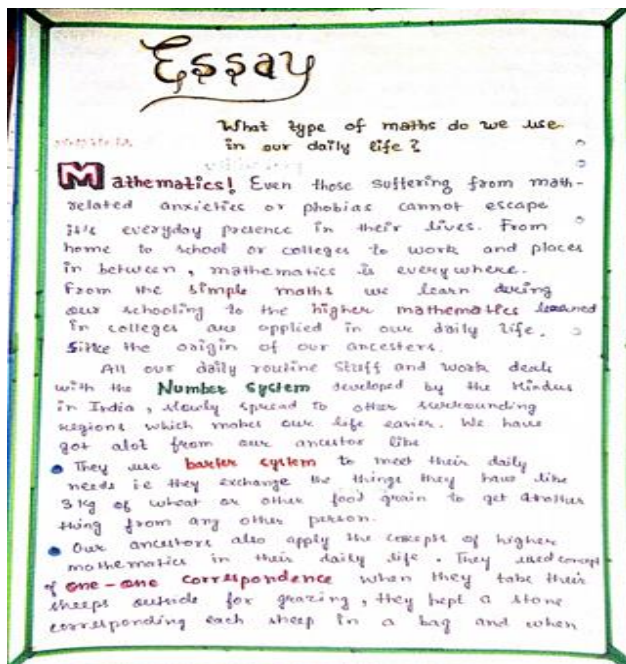 Essay
What type of maths do we use
in our daily life?
Mathematics! Even those suffering from math-
related anxieties or phobias cannot escape
its everyday presence in their lives. From
home to school or colleges to work and places
in between, mathematics is everywhere.
From the simple maths we learn during
our schooling to the higher mathematics learned
in colleges are applied in our daily life.
Since the origin of our ancesters.
All our daily routine stuff and work deals
with the Number System developed by the Hindus
in India, slowly spread to other surrounding
regions which makes our life easier. We have
got alot from our ancestor like
They use barter system to meet their daily
needs i.e they exchange the things they have like
3 kg of wheat or other food grain to get another
thing from any other person.
Our ancestors also apply the concept of higher
mathematics in their daily life. They used concept
of one-one correspondence when they take their
sheeps outside for grazing, they kept a stone
corresponding each sheep in a bag and when